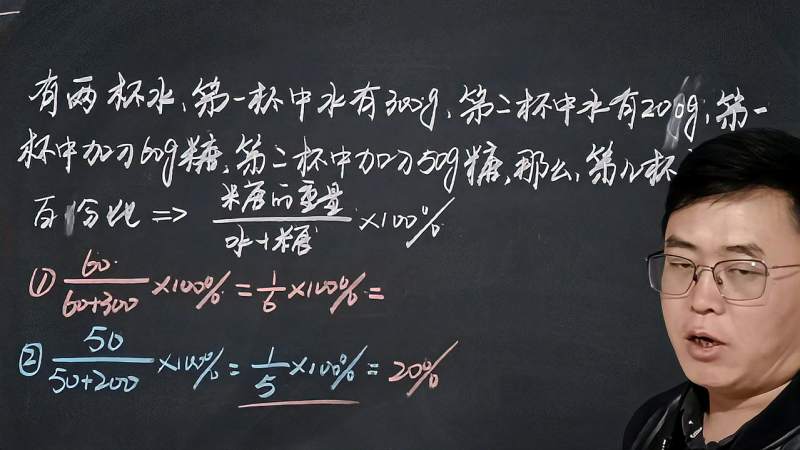 有两杯水,第一杯中水有300g,第二杯中水有200g,第一
杯中加了60g糖,第二杯中加了50g糖,那么,第几杯
百分比 => 糖的重量/水+糖 ×100%
① 60/60+300 ×100% = 1/6 ×100% =
② 50/50+200 ×100% = 1/5 ×100% = 20%